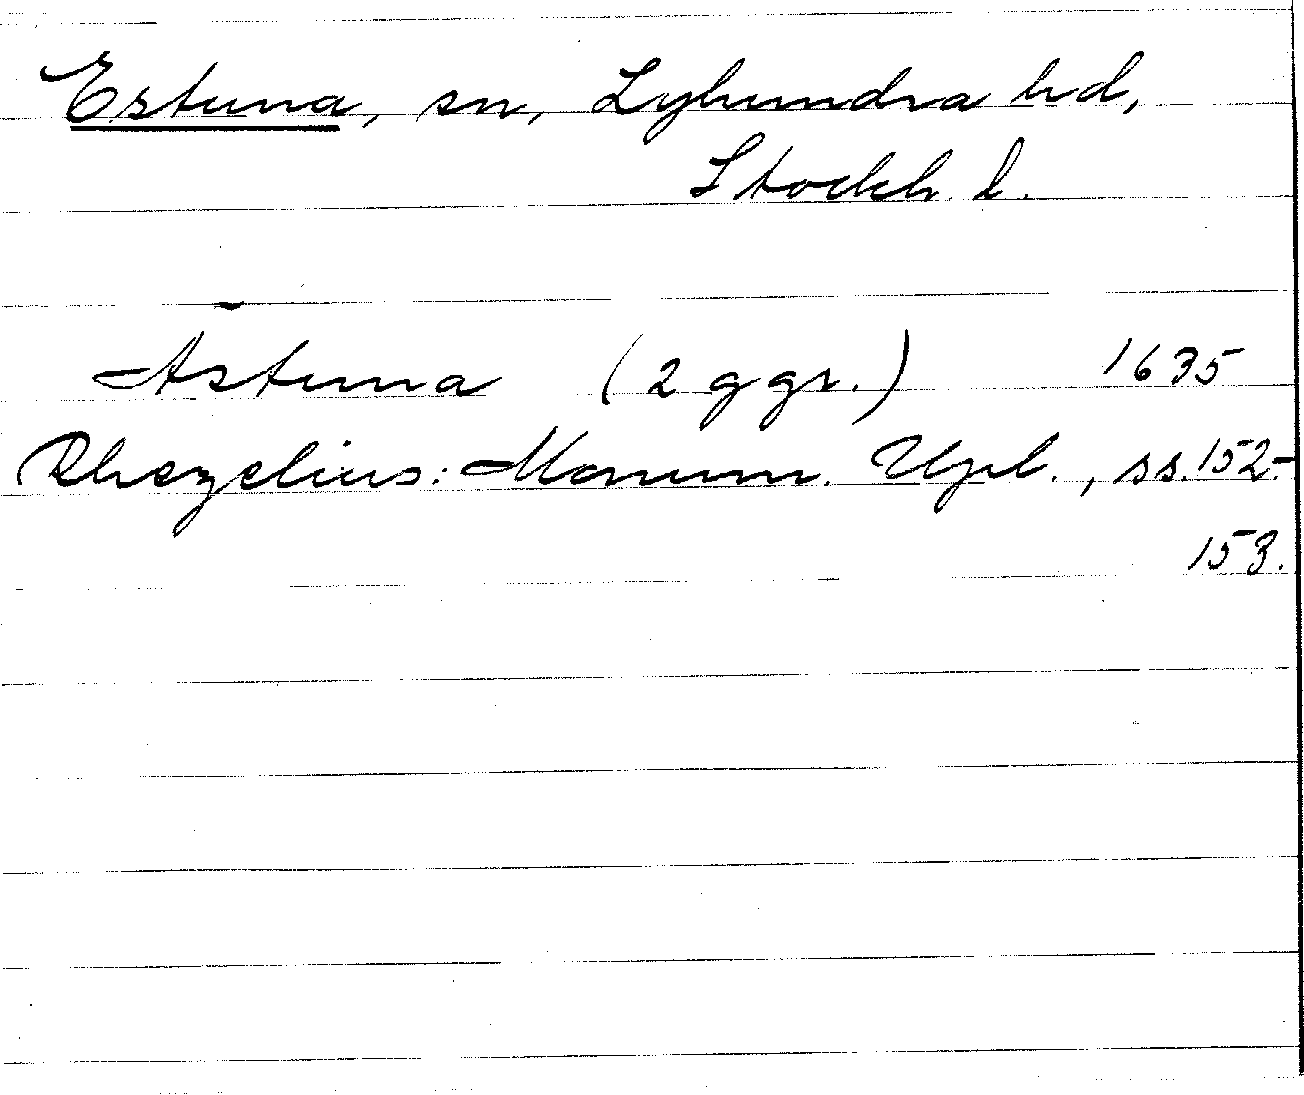 Estuna, sn, Lyhundra hd,
Stockh. l.
Astuna (2 ggr.) 1635
Rhezelius: Monum. Upl., ss. 152-
153.